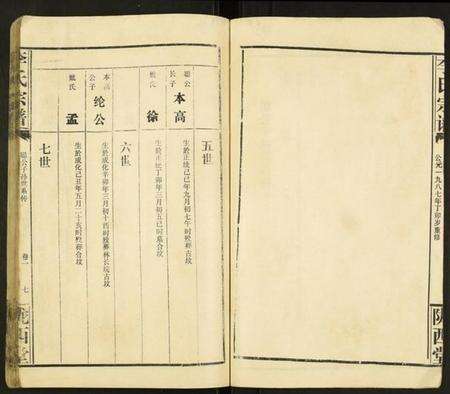 李氏宗譜
公元一九八七年丁卯岁重修
陇西堂
五世
聪公
长子
本高
生於正统己巳年九月初七午时殁葬古坟
配氏
徐
生於正统丁卯年三月初五巳时墓合坟
六世
本高
公子
纶公
生於成化辛卯年三月初十酉时殁葬林长坑古坟
配氏
孟
生於成化己丑年五月二十亥时殁葬合坟
七世
李氏宗譜
聪公子孙世系传
卷
七
陇西堂